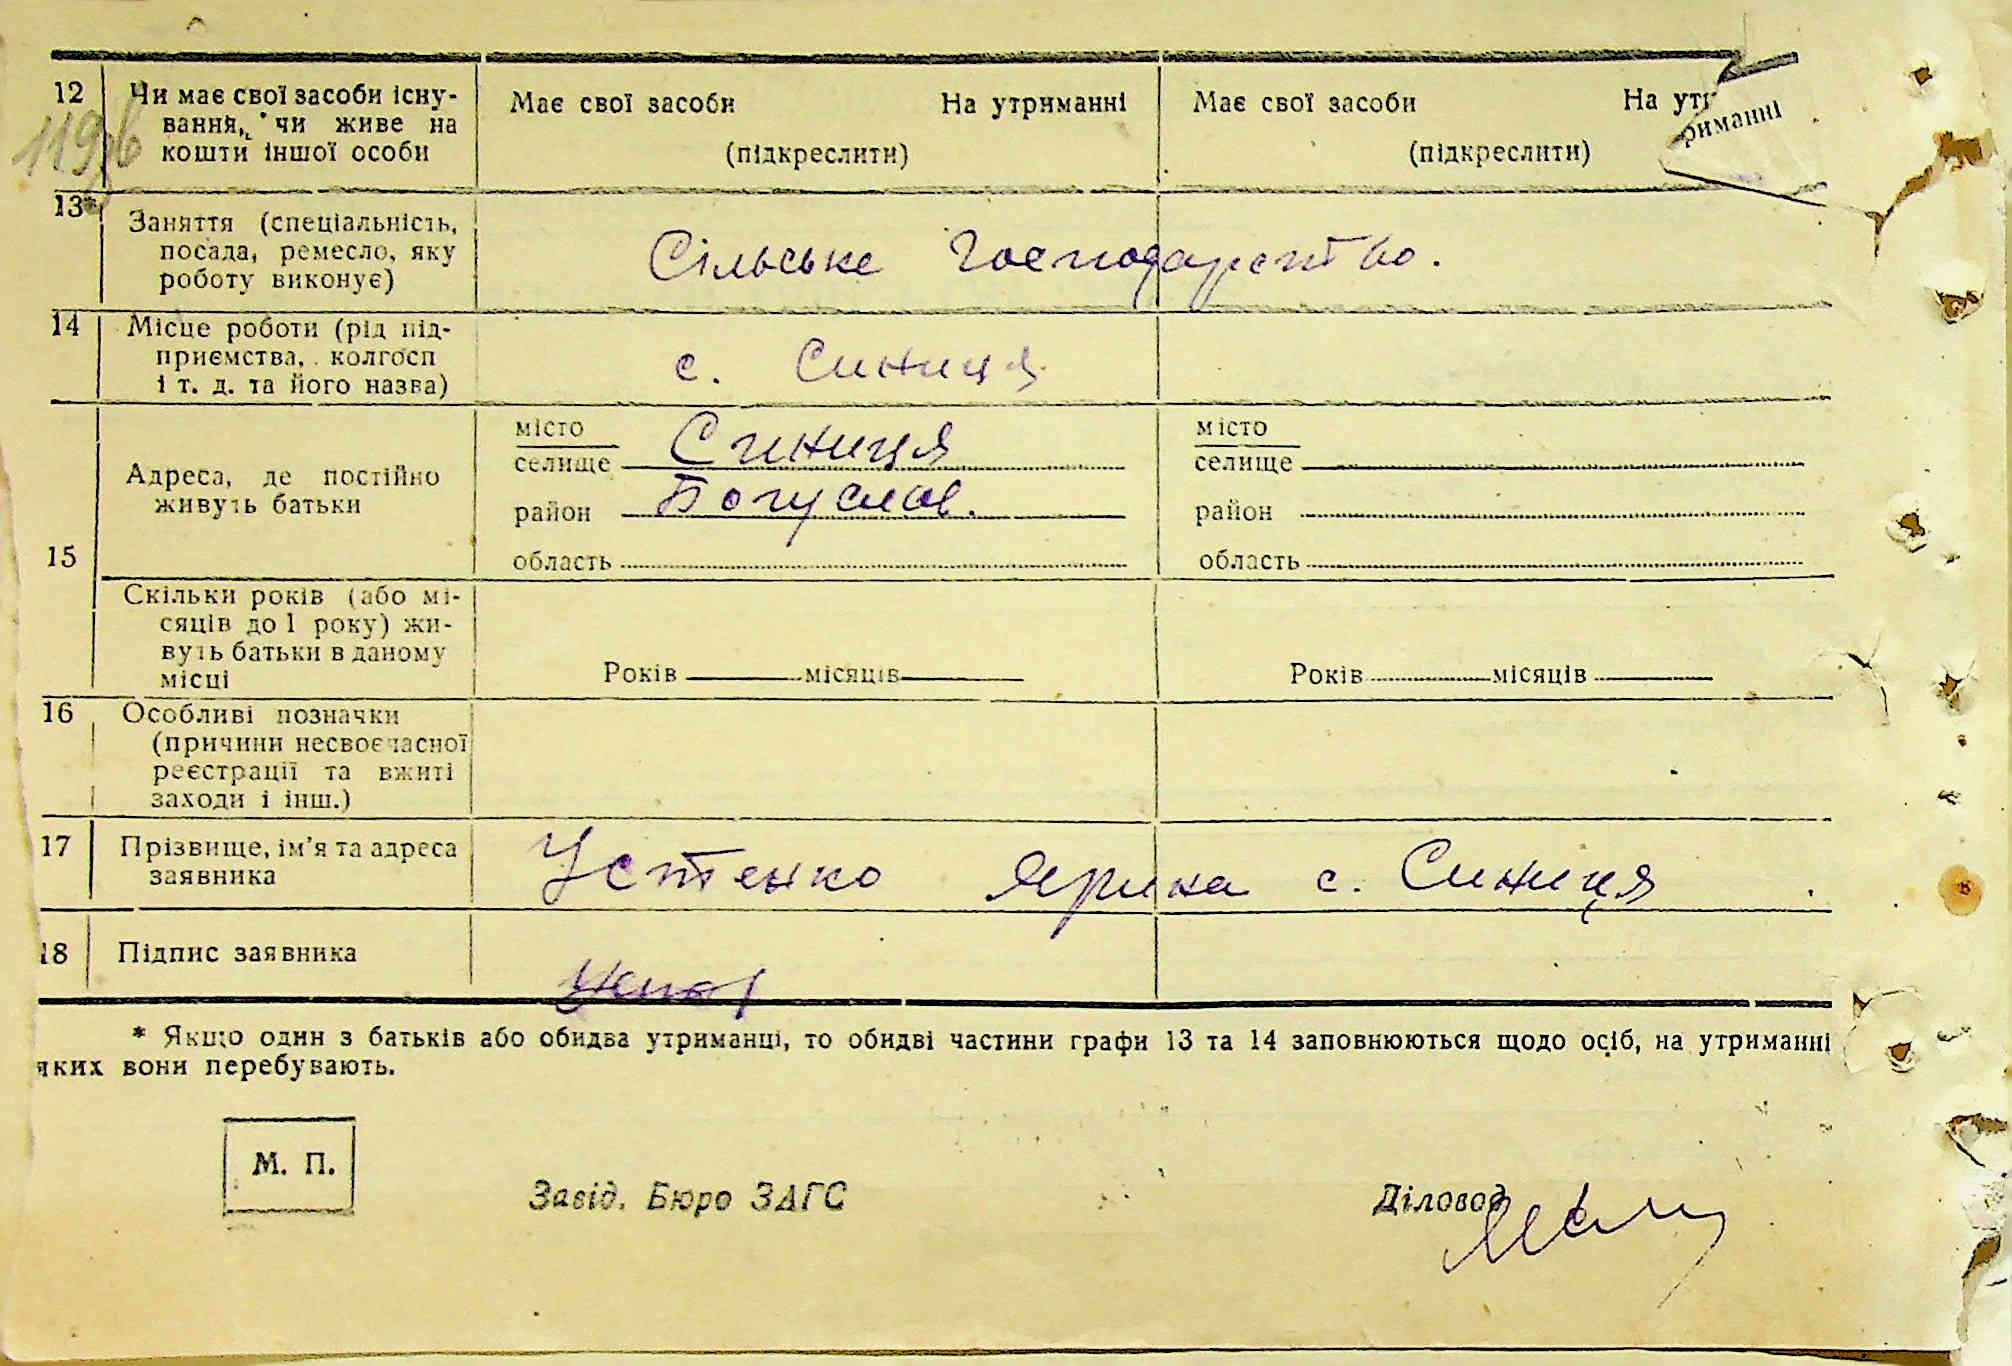 12 Чи має свої засоби існу-
вання, чи живе на
кошти іншої особи
Має свої засоби На утриманні
(підкреслити)
Має свої засоби На утриманні
(підкреслити)
119
13* Заняття (спеціальність,
посада, ремесло, яку
роботу виконує)
Сільське Господарство.
14 Місце роботи (рід під-
приємства, колгосп
і т. д. та його назва)
с. Синиця
15
Адреса, де постійно
живуть батьки
місто
селище Синиця
район Богуслав.
область
місто
селище
район
область
Скільки років (або мі-
сяців до 1 року) жи-
вуть батьки в даному
місці
Років місяців
Років місяців
16 Особливі позначки
(причини несвоєчасної
реєстрації та вжиті
заходи і інш.)
17 Прізвище, ім’я та адреса
заявника
Устенко Ярина с. Синиця
18 Підпис заявника
* Якщо один з батьків або обидва утриманці, то обидві частини графи 13 та 14 заповнюються щодо осіб, на утриманні
яких вони перебувають.
М. П.
Завід. Бюро ЗАГС
Діловод